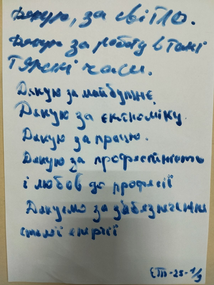 Дякую, за світло.
Дякую за роботу в такі
тяжкі часи.
Дякую за майбутнє.
Дякую за економіку.
Дякую за працю.
Дякую за професійність
і любов до професії
Дякуємо за забезпечення
сталої енергії